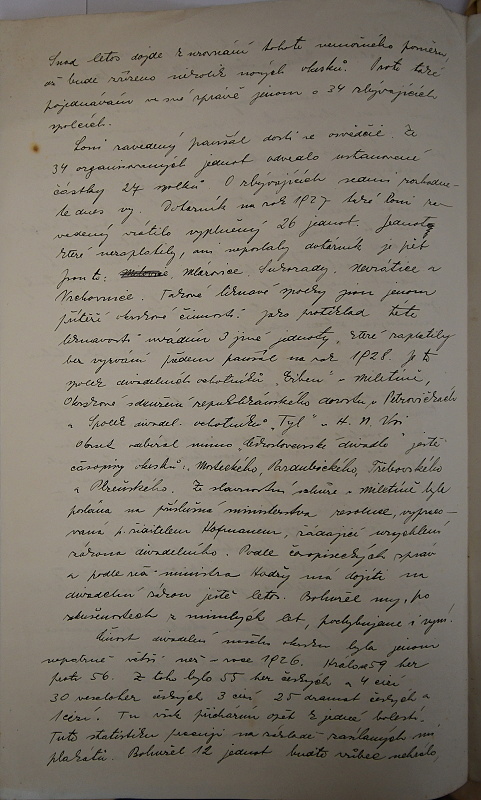 Snad letos dojde k urovnání tohoto nemožného poměru,
až bude zřízeno několik nových okrsků. Proto také
pojednávám ve své zprávě jenom o 34 zbývajících
spolcích.
Loni zavedený paušál dosti se osvědčil. Ze
34 organisovaných jednot odvedlo ustanovené
částky 27 spolků. O zbývajících sedmi rozhodne-
te dnes vy. Dotazník na rok 1927 také loni za-
vedený vrátilo vyplněný 26 jednot. Jednoty,
které nezaplatily, ani neposlaly dotazník je pět
Jsou to: Mlázovice, Sukorady, Nevrátice a
Vrchovnice. Takové liknavé spolky jsou jenom
přítěží okrskové činnosti. Jako protiklad této
liknavosti uvádím 3 jiné jednoty, které zaplatily
bez vyzvání předem paušál na rok 1928. Je to
spolek divadelních ochotníků „Erben" v Miletíně,
Okrskové sdružení republikánského dorostu v Petrovičkách
a Spolek divadel. ochotníků „Tyl" v H. N. Vsi
Okrsek odbíral mimo „Československé divadlo" ještě
časopisy okrsků: Mosteckého, Pardubického, Třebovského
a Plzeňského. Ze slavnostní schůze v Miletíně byla
poslána na příslušná ministerstva resoluce, vypraco-
vaná p. řiditelem Hofmanem, žádající urychlení
zákona divadelního. Podle časopiseckých zpráv
a podle řeči ministra Hodži má dojíti na
divadelní zákon ještě letos. Bohužel my, po
zkušenostech z minulých let, pochybujeme i nyní.
Činnost divadelní našeho okrsku byla jenom
nepatrně větší než v roce 1926. Hrálo se 59 her
proti 56. Z toho bylo 55 her českých a 4 cizí
30 veseloher českých 3 cizí, 25 dramat českých a
1 cizí. Tu však přicházím opět k jedné bolesti.
Tuto statistiku pracuji na základě zasílaných mi
plakátů. Bohužel 12 jednot buďto vůbec nehrálo,